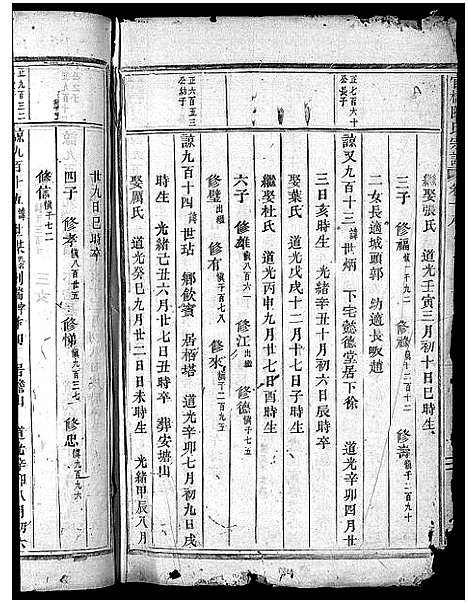 繼娶張氏 道光壬寅三月初十日巳時生
三子 修福 慎一千九二 修祿 慎千二百十 修壽 慎千二百九十
二女長適城頭郭 幼適長畈趙
正七百六十公長子
諒又九百十三 諱世炳 下宅懿德堂居下徐 道光辛卯四月廿
三日亥時生 光緒辛丑十月初六日辰時卒
娶葉氏 道光戊戌十二月十七日子時生
繼娶杜氏 道光丙申九月廿七日酉時生
六子 修雄 慎八百六一 修江 出繼 修德 慎千七五
修璧 出繼 修有 慎千百七八 修來 慎千二百九五
正六百五三公幼子
諒九百十四 諱世玷 鄉飲賓 居栢塔 道光辛卯七月初九日戌
時生 光緒己丑六月廿七日丑時卒 葬安塘山
娶厲氏 道光癸巳九月廿二日未時生 光緒甲辰八月
廿九日巳時卒
四子 修孝 慎八百廿五 修悌 慎九百三七 修忠 慎九百九六
修信 慎千七二
正九百三二
諒九百十五 諱世 道光辛卯八月初六